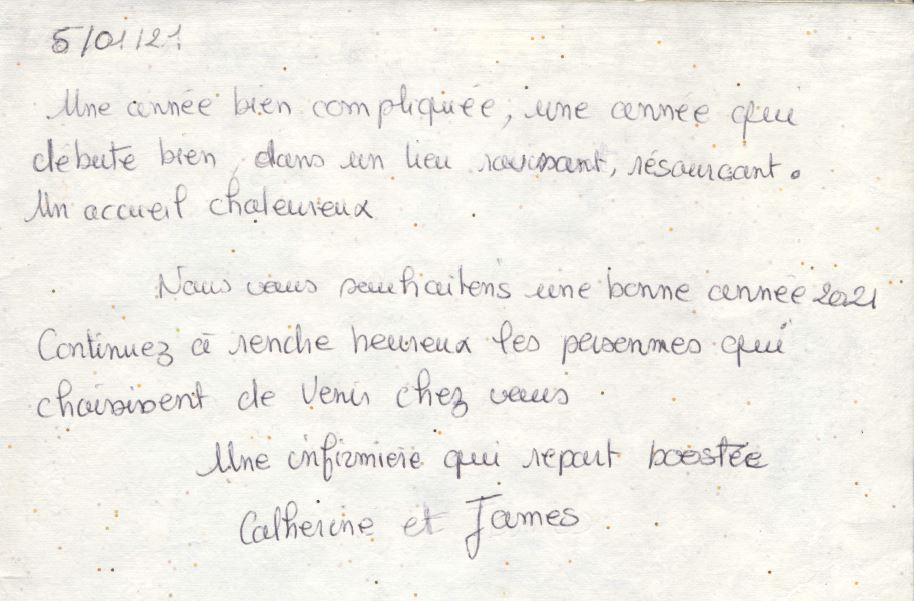 5/01/21
Une année bien compliquée, une année qui
débute bien, dans un lieu ravissant, résourçant.
Un accueil chaleureux
Nous vous souhaitons une bonne année 2021
Continuez à rendre heureux les personnes qui
choisissent de venir chez vous
Une infirmière qui repart boostée
Catherine et James